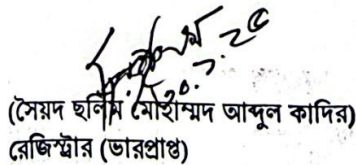 (সৈয়দ ছলিম মোহাম্মদ আব্দুল কাদির)
রেজিস্ট্রার (ভারপ্রাপ্ত)